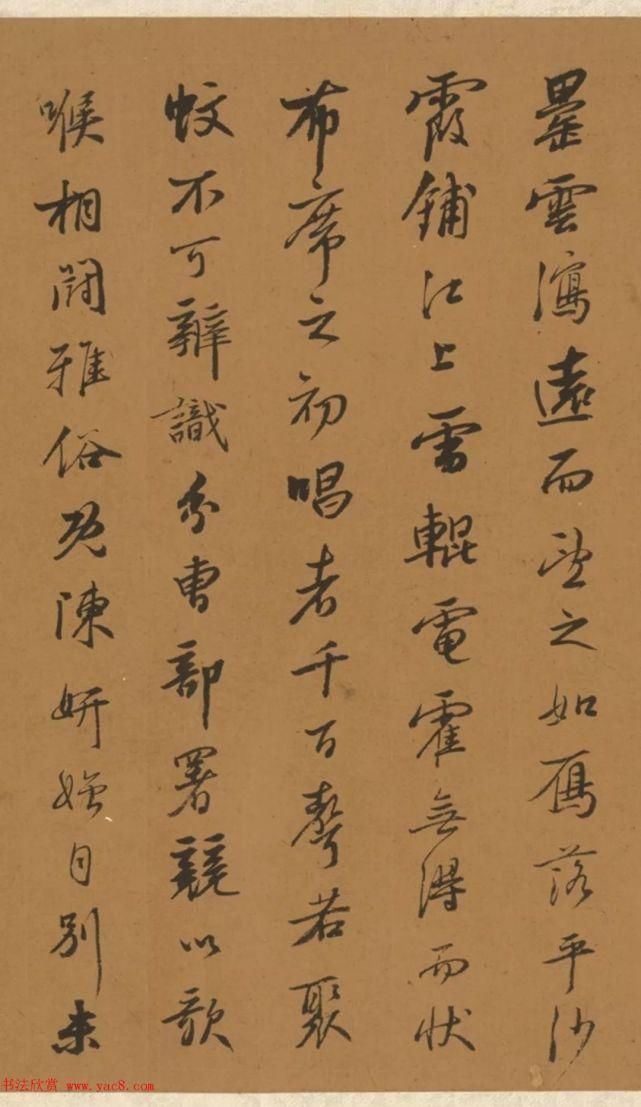 罍雲瀉遠而望之如鴈落平沙
霞鋪江上雷輥電霍無得而状
布席之初唱者千百聲若聚
蚊不可辨識分曹部署競以歌
喉相鬪雅俗既陳妍媸自別未
书法欣赏 www.yac8.com